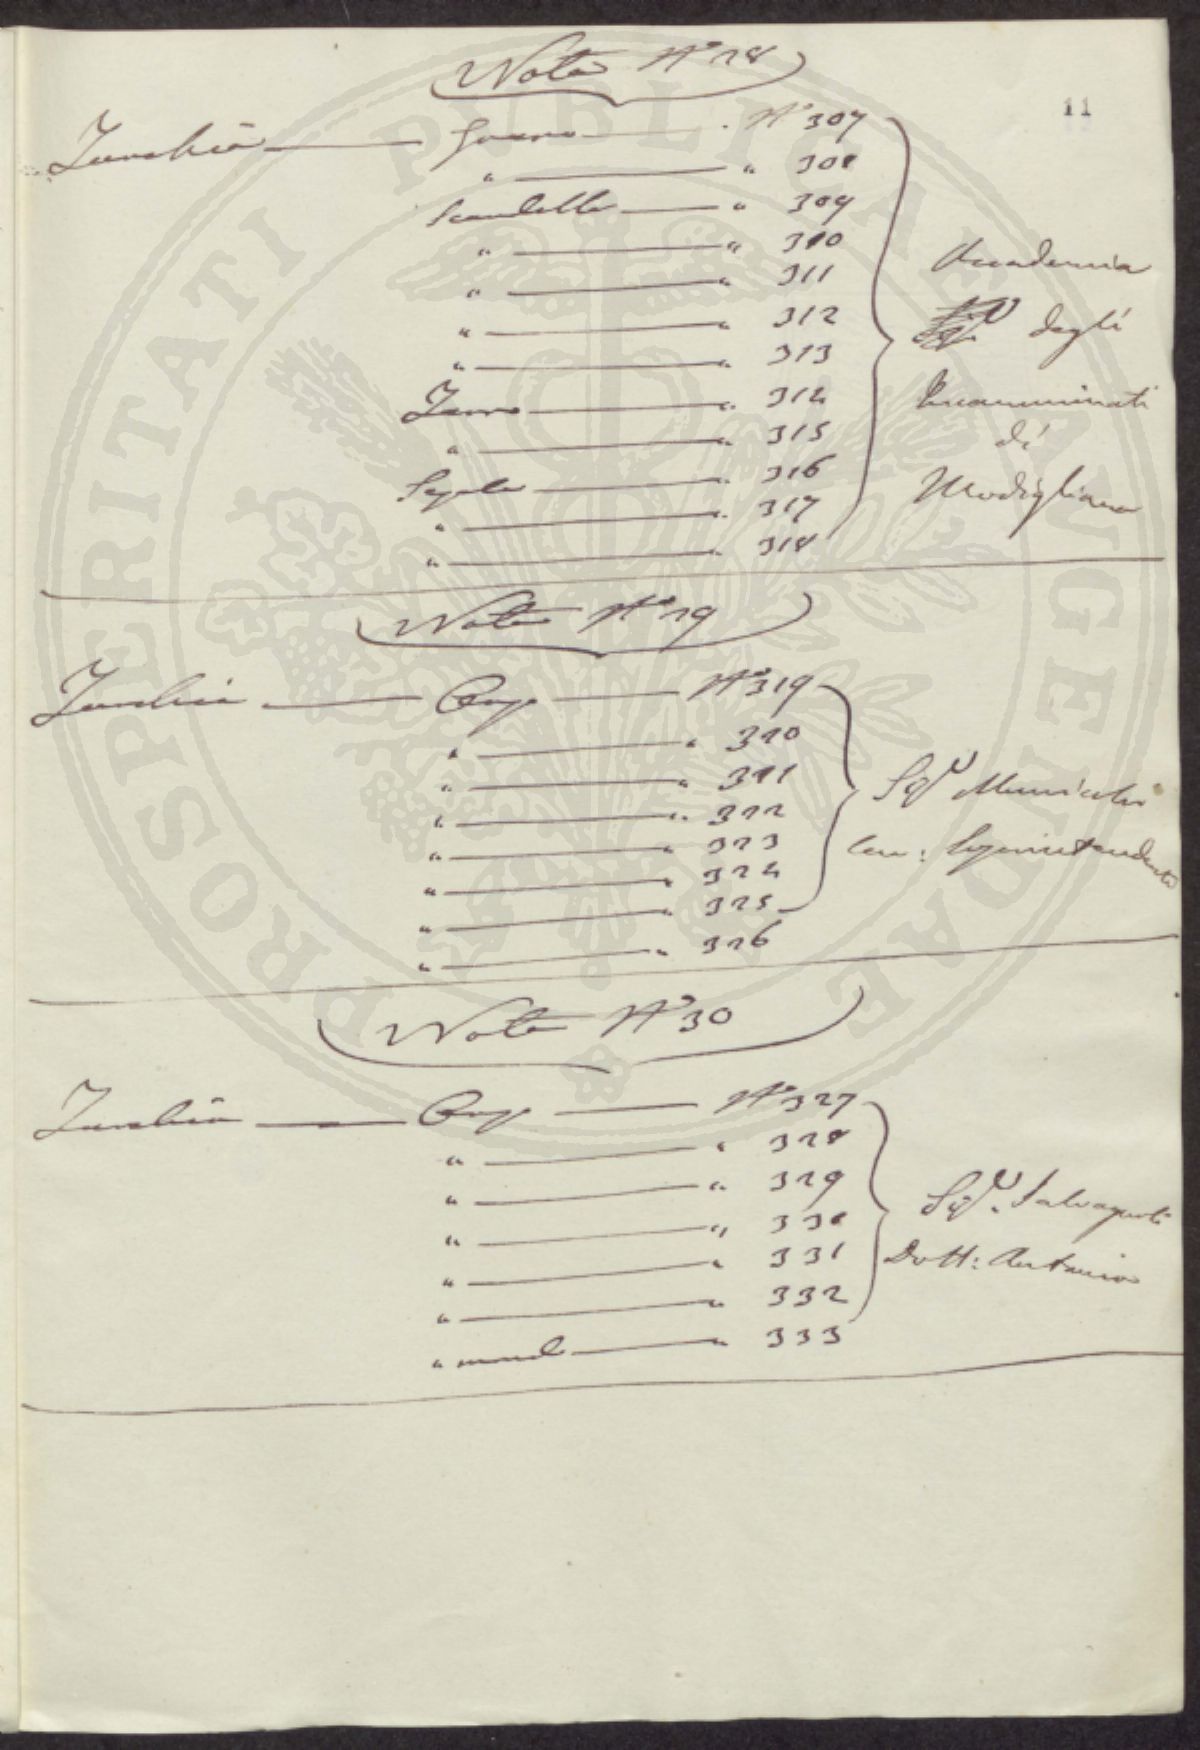 Nota N° 28
11
Turchia Grano N° 307
" " 308
Scandella " 309
" " 310
" " 311
" " 312
" " 313
" 314
" " 315
Segale " 316
" " 317
" " 318
Accademia
degli
Incamminati
di
Modigliana
Nota N° 29
Turchia Orzo N° 319
" " 320
" " 321
" " 322
" " 323
" " 324
" " 325
" " 326
Sigr
Nota N° 30
Turchia Orzo N° 327
" " 328
" " 329
" " 330
" " 331
" " 332
" mond " 333
Sigr. Salvagnoli
Dott: Antonio
PROSPERITATI PUBLICAE AUGENDAE